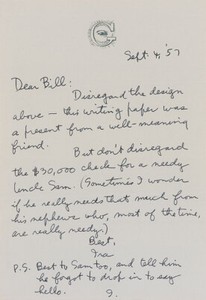 Sept. 4, '57
Dear Bill:
Disregard the design
above — this writing paper was
a present from a well-meaning
friend.
But don't disregard
the $30,000 check for a needy
Uncle Sam. (Sometimes I wonder
if he really needs that much from
his nephews who, most of the time,
are really needy.)
Best,
Ira
P.S. Best to Sam too, and tell him
he forgot to drop in to say
hello.
I.